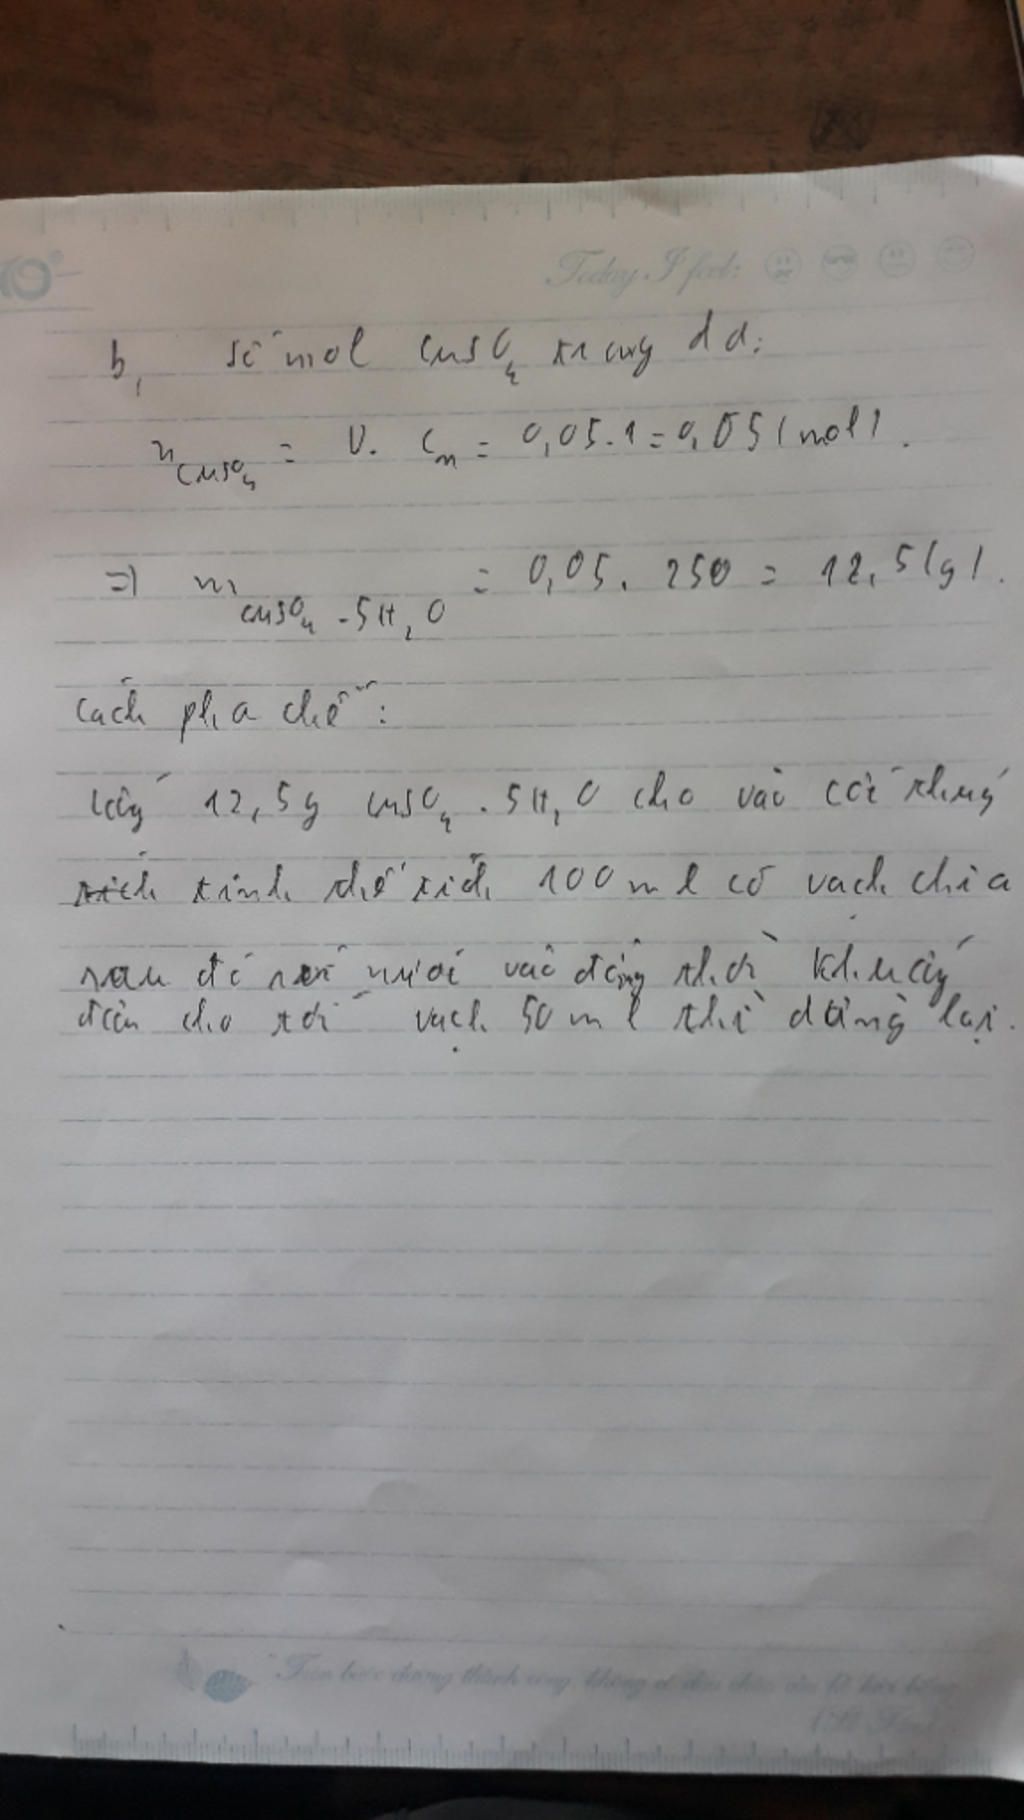 10
Today I feel:
b, số mol CuSO4 trong dd:
nCuSO4 = V. CM = 0,05.1 = 0,05 (mol).
=> mCuSO4.5H2O = 0,05. 250 = 12,5 (g).
Cách pha chế:
Lấy 12,5g CuSO4 . 5H2O cho vào cốc thủy
tinh thể tích 100 ml có vạch chia
sau đó nước vào đồng thời khuấy
đều cho tới vạch 50 ml thì dừng lại.